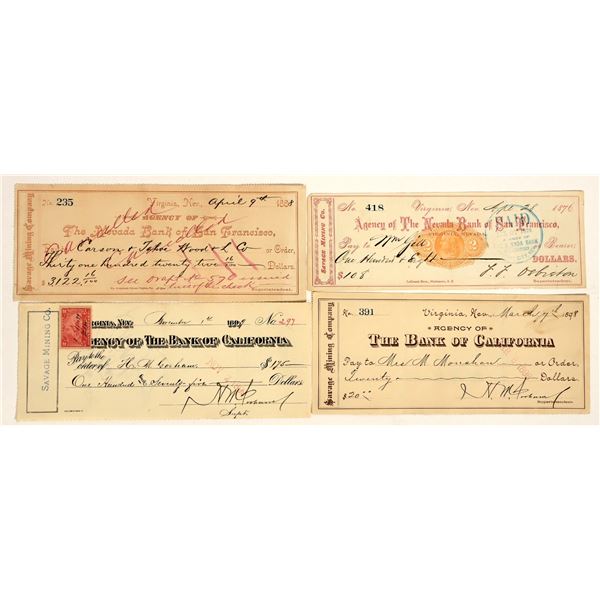 No. 235
Virginia, Nev., April 9th 1888
AGENCY OF
The Nevada Bank of San Francisco,
Pay Carson & Tahoe Wood & L Co or Order,
Thirty one hundred twenty two 16/100 Dollars
$ 3122 16/100
Superintendent.
Savage Mining Company
No. 418
Virginia, Nev. 1876
Agency of The Nevada Bank of San Francisco,
VIRGINIA, NEVADA
Pay to Wm Gill or Bearer
One Hundred & Eight DOLLARS.
$ 108
PAID
Savage Mining Co.
SAVAGE MINING CO.
VIRGINIA, NEV. November 1st 1899 No. 297
AGENCY OF THE BANK OF CALIFORNIA
Pay to the
order of H. M. Gorham $ 175
One Hundred & Seventy five Dollars
Supt.
No. 391
Virginia, Nev. March 7th 1898
AGENCY OF
THE BANK OF CALIFORNIA
Pay to Mrs M. Monahan or Order,
Twenty Dollars.
$ 20
Superintendent.
Savage Mining Company